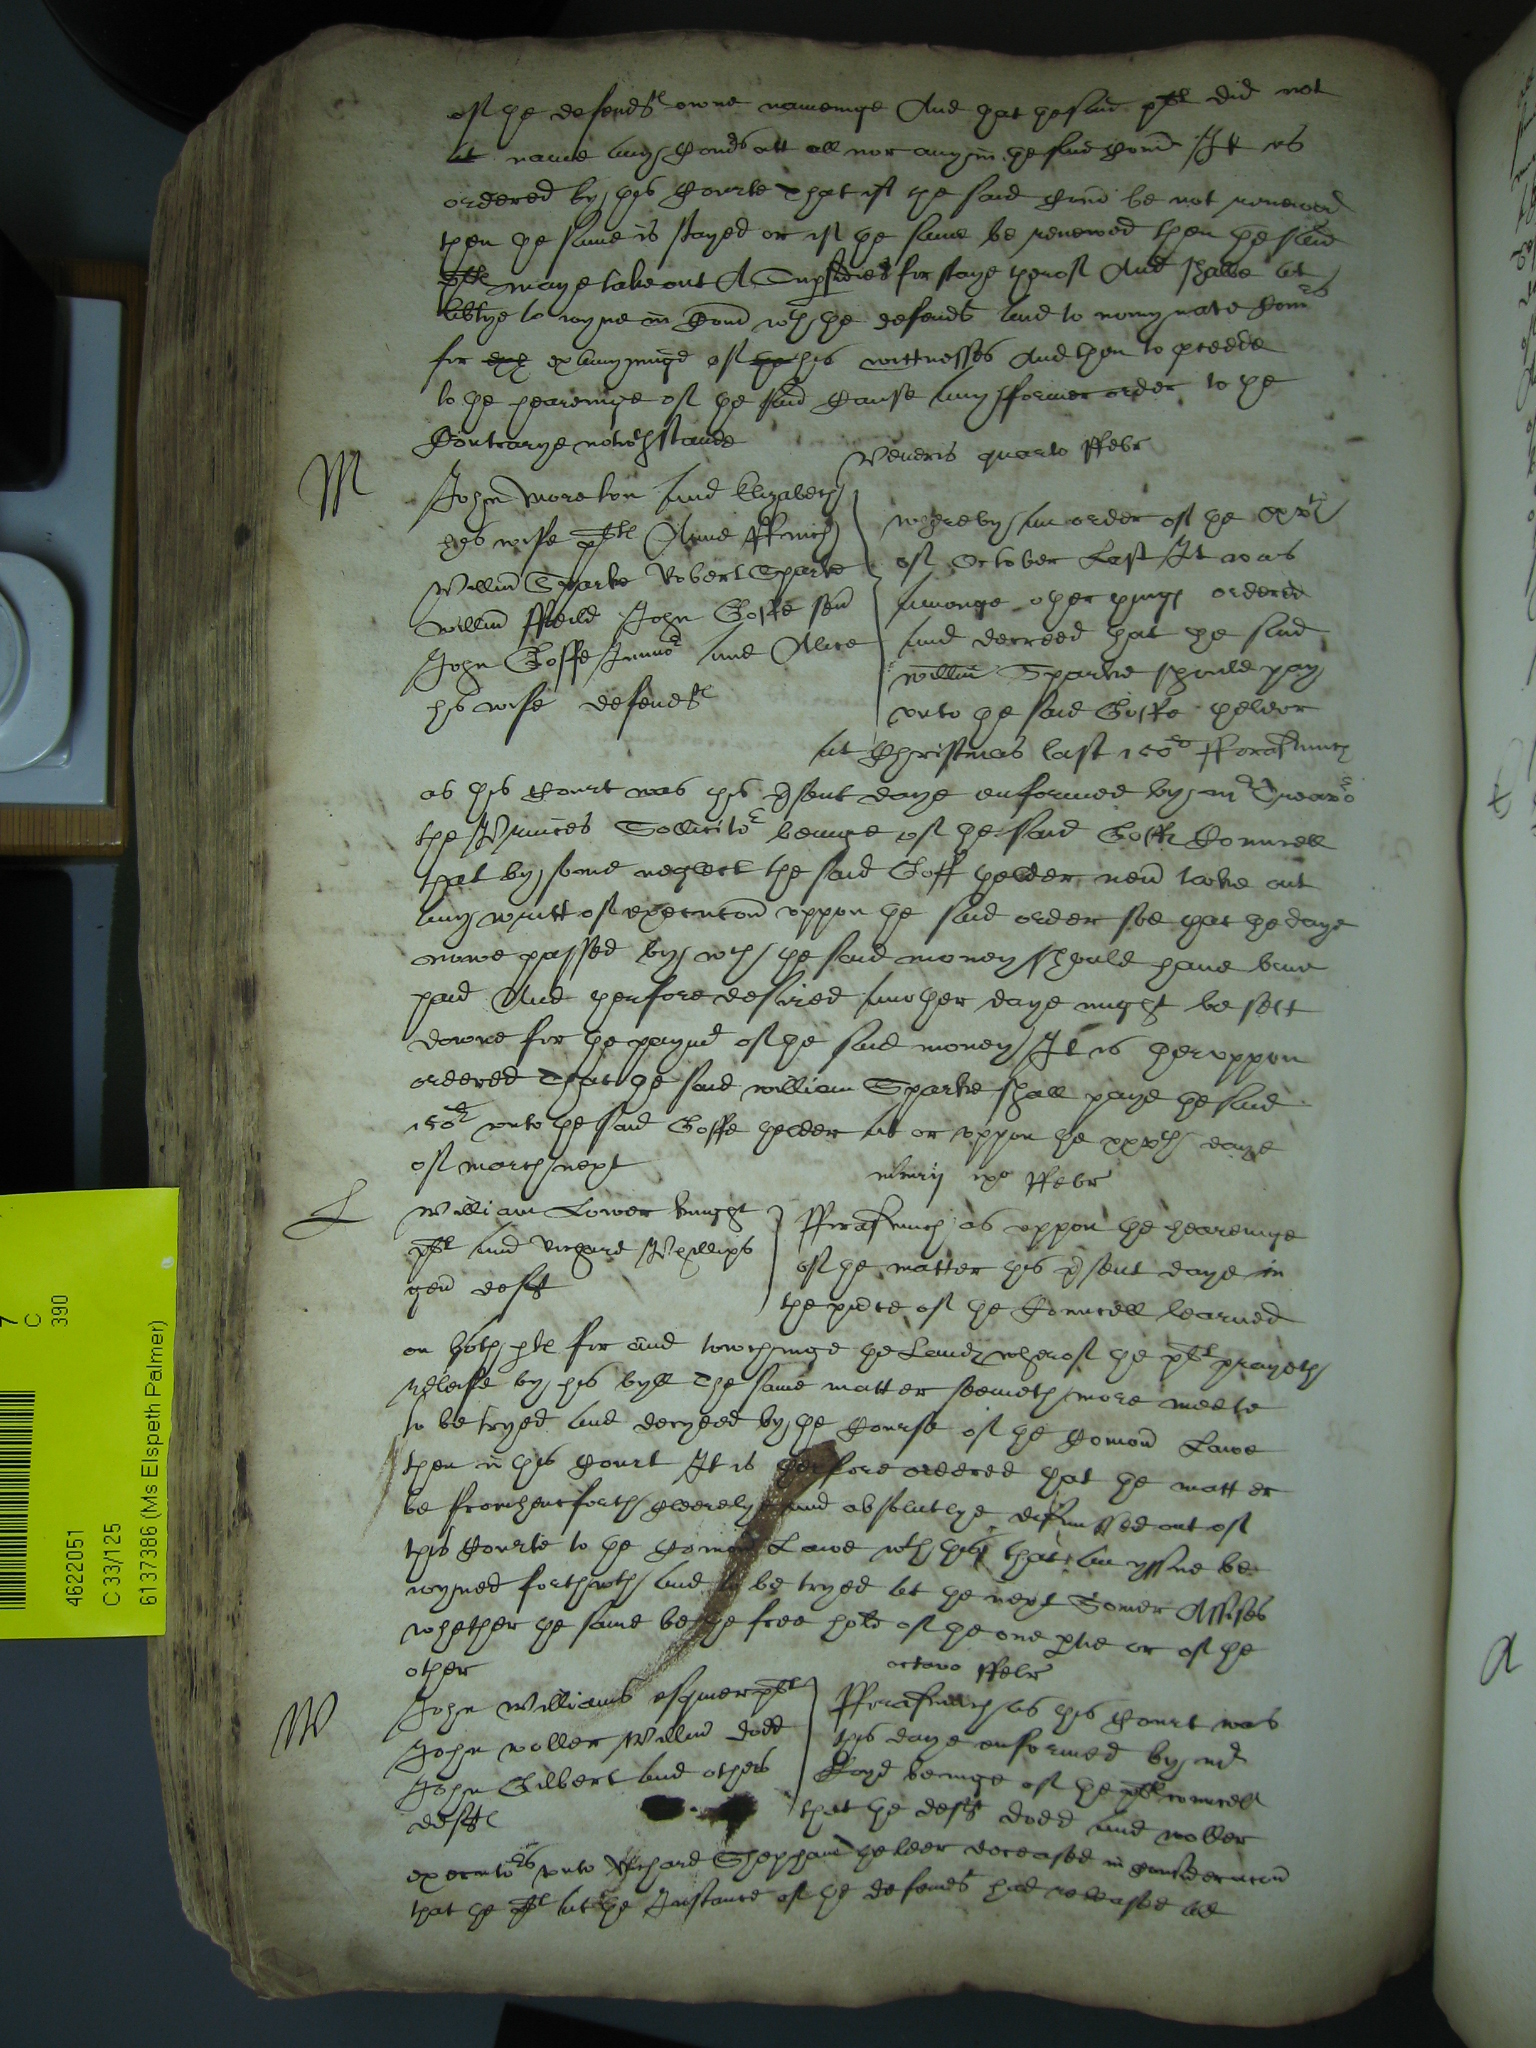 of the defendts owne nameinge And that the said plt did not
name any Comrs att all nor any in the said Comn It is
ordered by this Courte that if the said Comn be not renewed
then the same is stayed or if the same be renewed then the said
plt maye take out A Supsedeas for staye therof And shalbe at
libtye to ioyne in Comn wth the defendt and to nomynate Comrs
for exaninge of his wittnesses And then to pceede
to the hearinge of the said Cause any former order to the
Contrarye notwthstande
Veneris quarto ffebr
M
John Moreton and Elizabeth
his wife plts Anne ffinch
Willm Sparke Robert Sparke
Willm ffeild John Goffe sen
John Goffe Junior and Alice
his wife defendts
Whereby an order of the xxxth
of October Last It was
amonge other things ordered
and decreed that the said
Willm Sparke should pay
unto the said Goffe thelder
at Christmas last 150li fforasmuch
as this Court was this psent daye enformed by mr Trevor
the Princes Sollicitor beinge of the said Goffe Councell
that by some neglect the said Goff thelder nevr tooke out
any writt of execucon uppon the said order soe that the daye
nowe passed by wch the said money should have bene
paid And therfore desired another daye might be sett
downe for the paymt of the said money It is theruppon
ordered That the said William Sparke shall paye the said
150li unto the said Goffe thelder at or uppon the xxxth daye
of march next
mercurij ixo ffebr
L
William Lower knight
plt and Richard Phillips
gen defft
fforasmuch as uppon the hearinge
of the matter this psent daye in
the psence of the Councell learned
on both pts for and touchinge the Lands wherof the plt prayeth
releife by his bill The same matter seemeth more meete
to be tryed and decyded by the Course of the Comon Lawe
then in this Court It is therfore ordered that the matter
be fromhencforth cleerelye and absolutlye dismissed out of
this Courte to the Comon Lawe wth this that an yssue be
ioyned forthwth and to be tryed at the next Somer Assises
whether the same be the free hold of the one ptie or of the
other
octavo ffebr
W
John Williams esquier plt
John Woller Willm Dodd
John Gilbert and others
deffts
fforasmuch as this Court was
this daye enformed by mr
beinge of the plts councell
that the deffts Dodd and Woller
executors unto Richard Sheppard thelder deceased in consideracon
that the plt at the Instance of the defendt had released all
7
C
390
4622051
C 33/125
6137386 (Ms Elspeth Palmer)
a